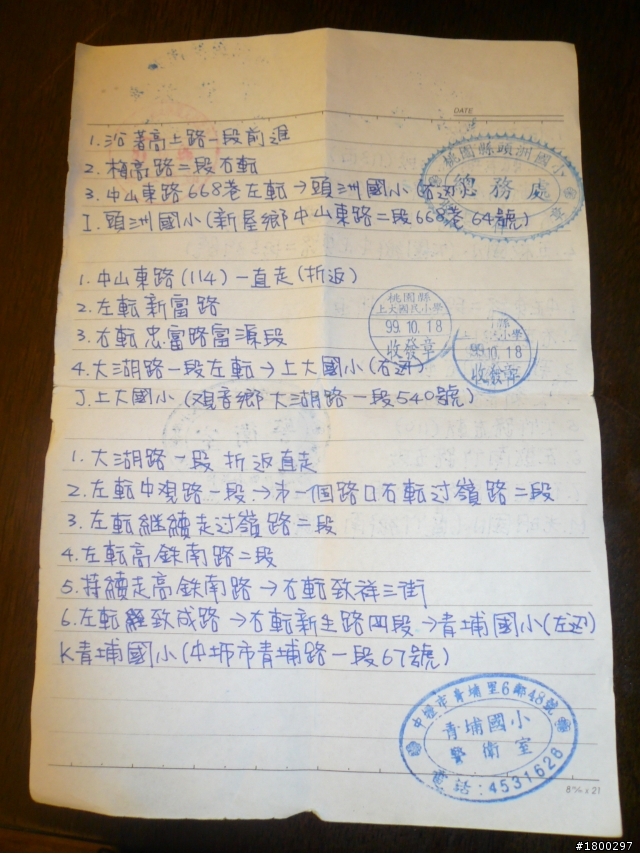 DATE
1. 沿著高上路一段前進
2. 梅高路二段右転
3. 中山東路668巷左転→頭洲國小(右边)
桃園縣頭洲國小
總務處
I. 頭洲國小(新屋鄉中山東路二段668巷64號)
1. 中山東路(114)一直走(折返)
2. 左転新富路
3. 右転忠富路富源段
4. 大湖路一段左転→上大國小(右边)
桃園縣
上大國民小學
99.10.18
收發章
縣
小學
99.10.18
收發章
J. 上大國小(观音鄉大湖路一段540號)
警衛室
1. 大湖路一段折返直走
2. 左転中观路一段→第一個路口右転过嶺路二段
3. 左転継續走过嶺路二段
4. 左転高鉄南路二段
5. 持續走高鉄南路→右転致祥三街
6. 左転經致成路→右転新生路四段→青埔國小(左边)
K 青埔國小(中坜市青埔路一段67號)
中壢市青埔里6鄰48號
青埔國小
警衛室
電話:4531628
#1800297